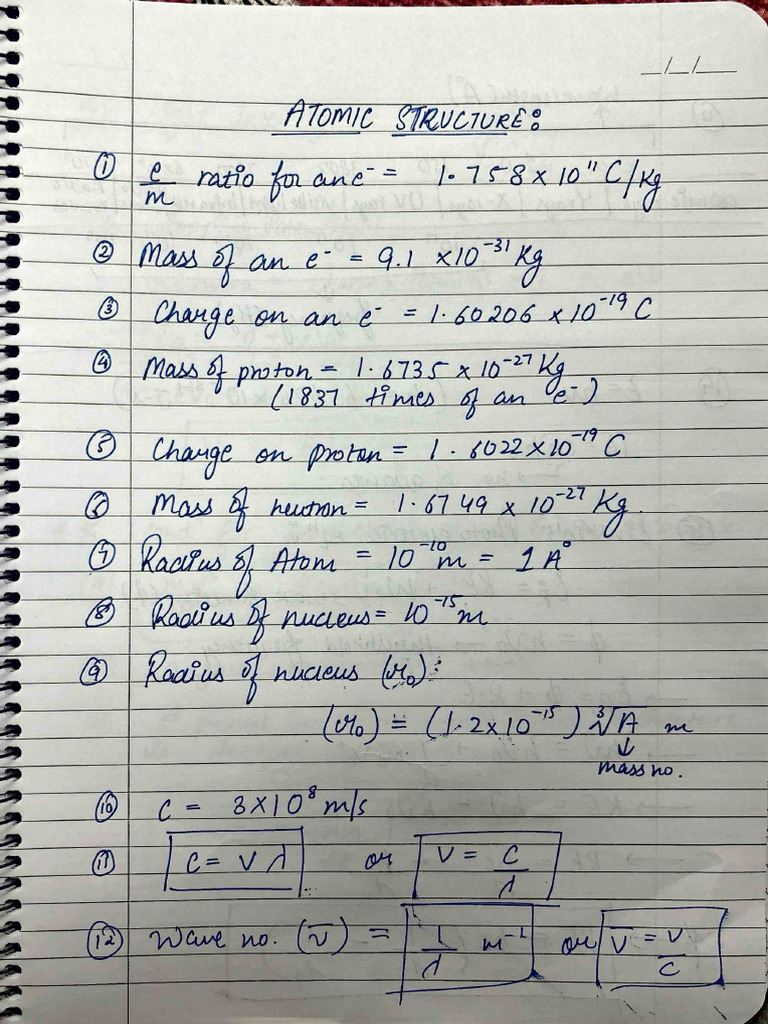 _/_/_
ATOMIC STRUCTURE:
① e/m ratio for an e⁻ = 1.758 x 10¹¹ C/Kg
② Mass of an e⁻ = 9.1 x10⁻³¹ Kg
③ Charge on an e⁻ = 1.60206 x 10⁻¹⁹ C
④ Mass of proton = 1.6735 x 10⁻²⁷ Kg
(1837 times of an e⁻)
⑤ Charge on proton = 1.6022 x10⁻¹⁹ C
⑥ Mass of neutron = 1.6749 x 10⁻²⁷ Kg.
⑦ Radius of Atom = 10⁻¹⁰ m = 1 A°
⑧ Radius of nucleus = 10⁻¹⁵ m
⑨ Radius of nucleus (r₀):
(r₀) = (1.2x10⁻¹⁵) ∛A m
↓
mass no.
⑩ C = 3x10⁸ m/s
⑪ C = ν λ or ν = C/λ
⑫ Wave no. (ν̅) = 1/λ m⁻¹ or ν̅ = ν/C